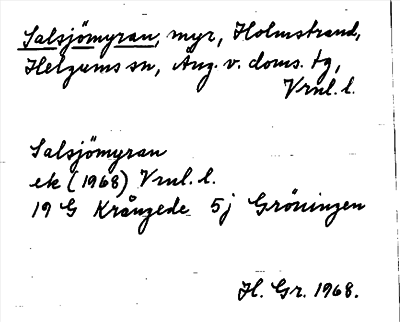 Salsjömyran, myr, Holmstrand,
Helgums sn, Ång. v. doms. tg,
Vrnl. l.
Salsjömyran
ek (1968) Vrnl. l.
19 G Krångede 5j Gröningen
H. Gr. 1968.